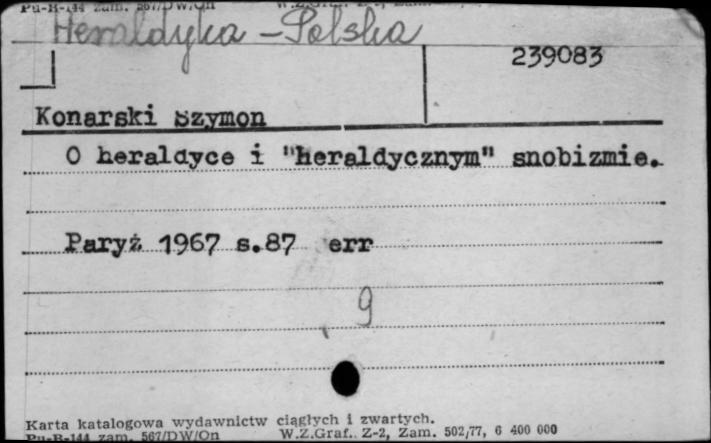 Pu-B-144 zam. 567/DW/On
Heraldyka - Polska
239083
Konarski Szymon
O heraldyce i "heraldycznym" snobizmie.
Paryż 1967 s.87 err
9
Karta katalogowa wydawnictw ciągłych i zwartych.
Pu-B-144 zam. 567/DW/On W.Z.Graf. Z-2, Zam. 502/77, 6 400 000